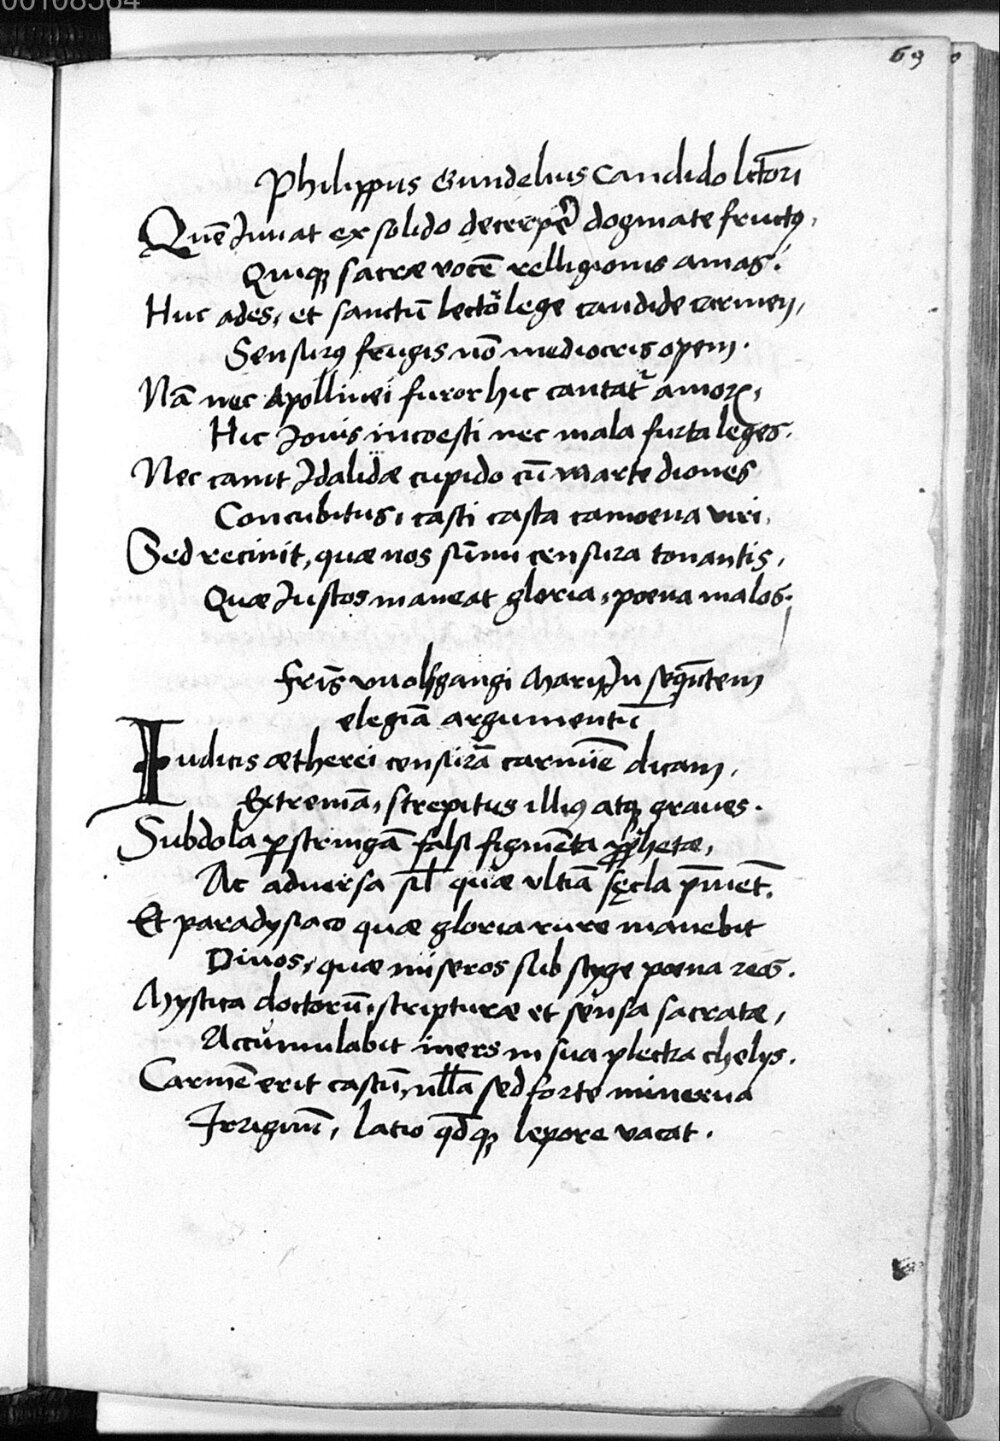 00108564
69
Philippus Gundelius Candido lectori
Quē Iuuat ex solido decerpē dogmate fructꝯ,
Quiqꝫ sacræ vocē relligionis amas:
Huc ades, et sanctū lector lege candide carmen,
Sensurꝯ frugis nō mediocris opem.
Nā nec Apollinei furor hic cantat᷑ amorꝝ,
Hic Iouis incoesti nec mala furta leges.
Nec canit Idalidæ cupido cū marte diones
Concubitus, casti casta camoena viri,
Sed recinit, quæ nos sūmi censura tonantis,
Quæ Iustos maneat gloria, poena malos.
Fris̄ vuolfgangi Marij In seqn̄tem
elegiā argumentū
Iudicis ætherei censurā carmīe dicam,
Extremā, strepitus illiꝯ atqꝫ graues.
Subdola ꝑstringā falsi figmēta ꝓphetæ,
Ac aduersa sil̄ quæ vltīa sęcla p̄met.
Et paradysiaco quæ gloria rure manebit
Diuos, quæ miseros sub styge poena reos.
Mystica doctorū, scripturæ et sensa sacratæ,
Accumulabit iners in sua plectra chelys.
Carmē erit castū, nl̄la sed forte minerua
Irriguū, latio qd̄qꝫ lepore vacat.